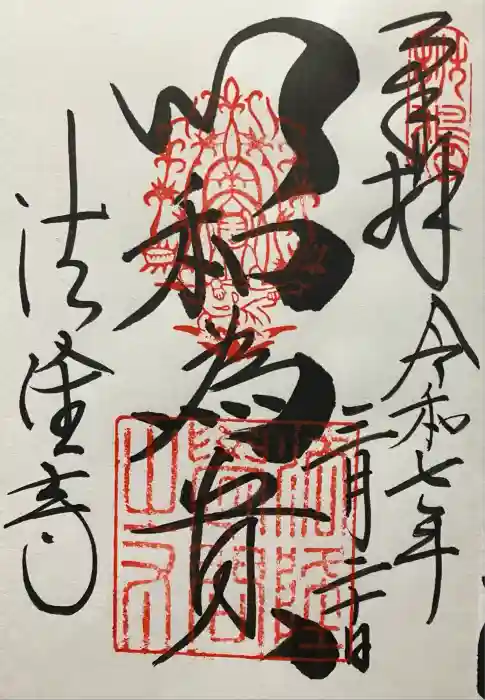 奉拝
令和七年
二月二十日
以和為貴
法隆寺